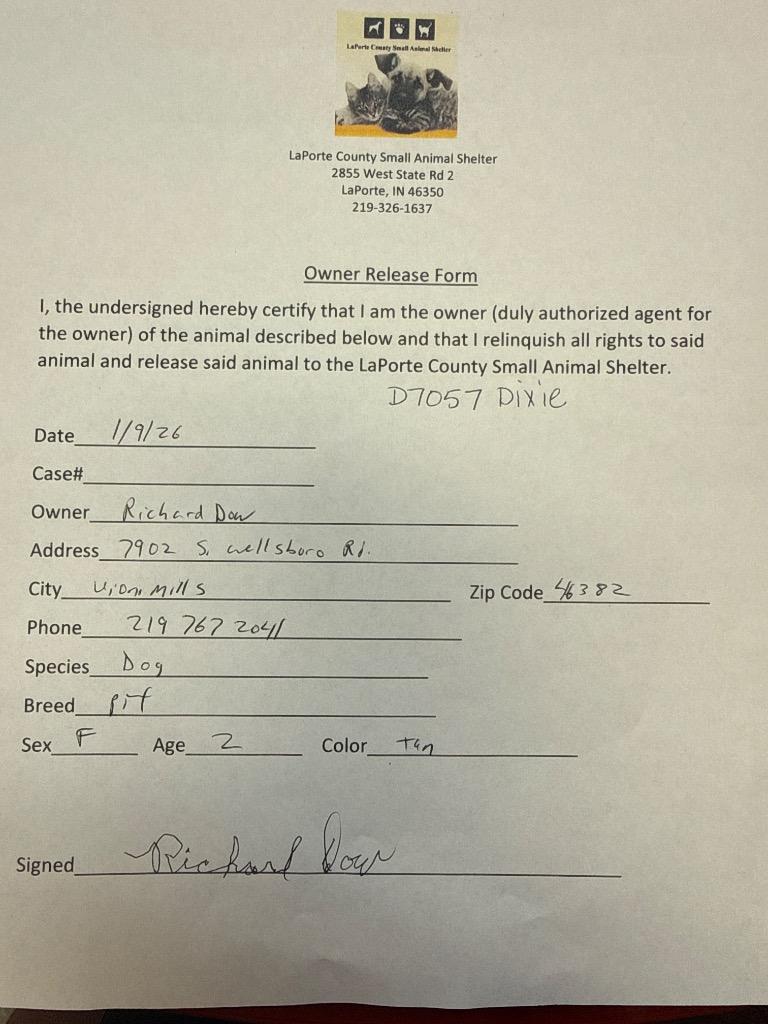 LaPorte County Small Animal Shelter
LaPorte County Small Animal Shelter
2855 West State Rd 2
LaPorte, IN 46350
219-326-1637
Owner Release Form
I, the undersigned hereby certify that I am the owner (duly authorized agent for
the owner) of the animal described below and that I relinquish all rights to said
animal and release said animal to the LaPorte County Small Animal Shelter.
D7057 Dixie
Date 1/9/26
Case#
Owner Richard Dow
Address 7902 S. wellsboro Rd.
City Union Mills Zip Code 46382
Phone 219 767 2041
Species Dog
Breed pit
Sex F Age 2 Color tan
Signed Richard Dow